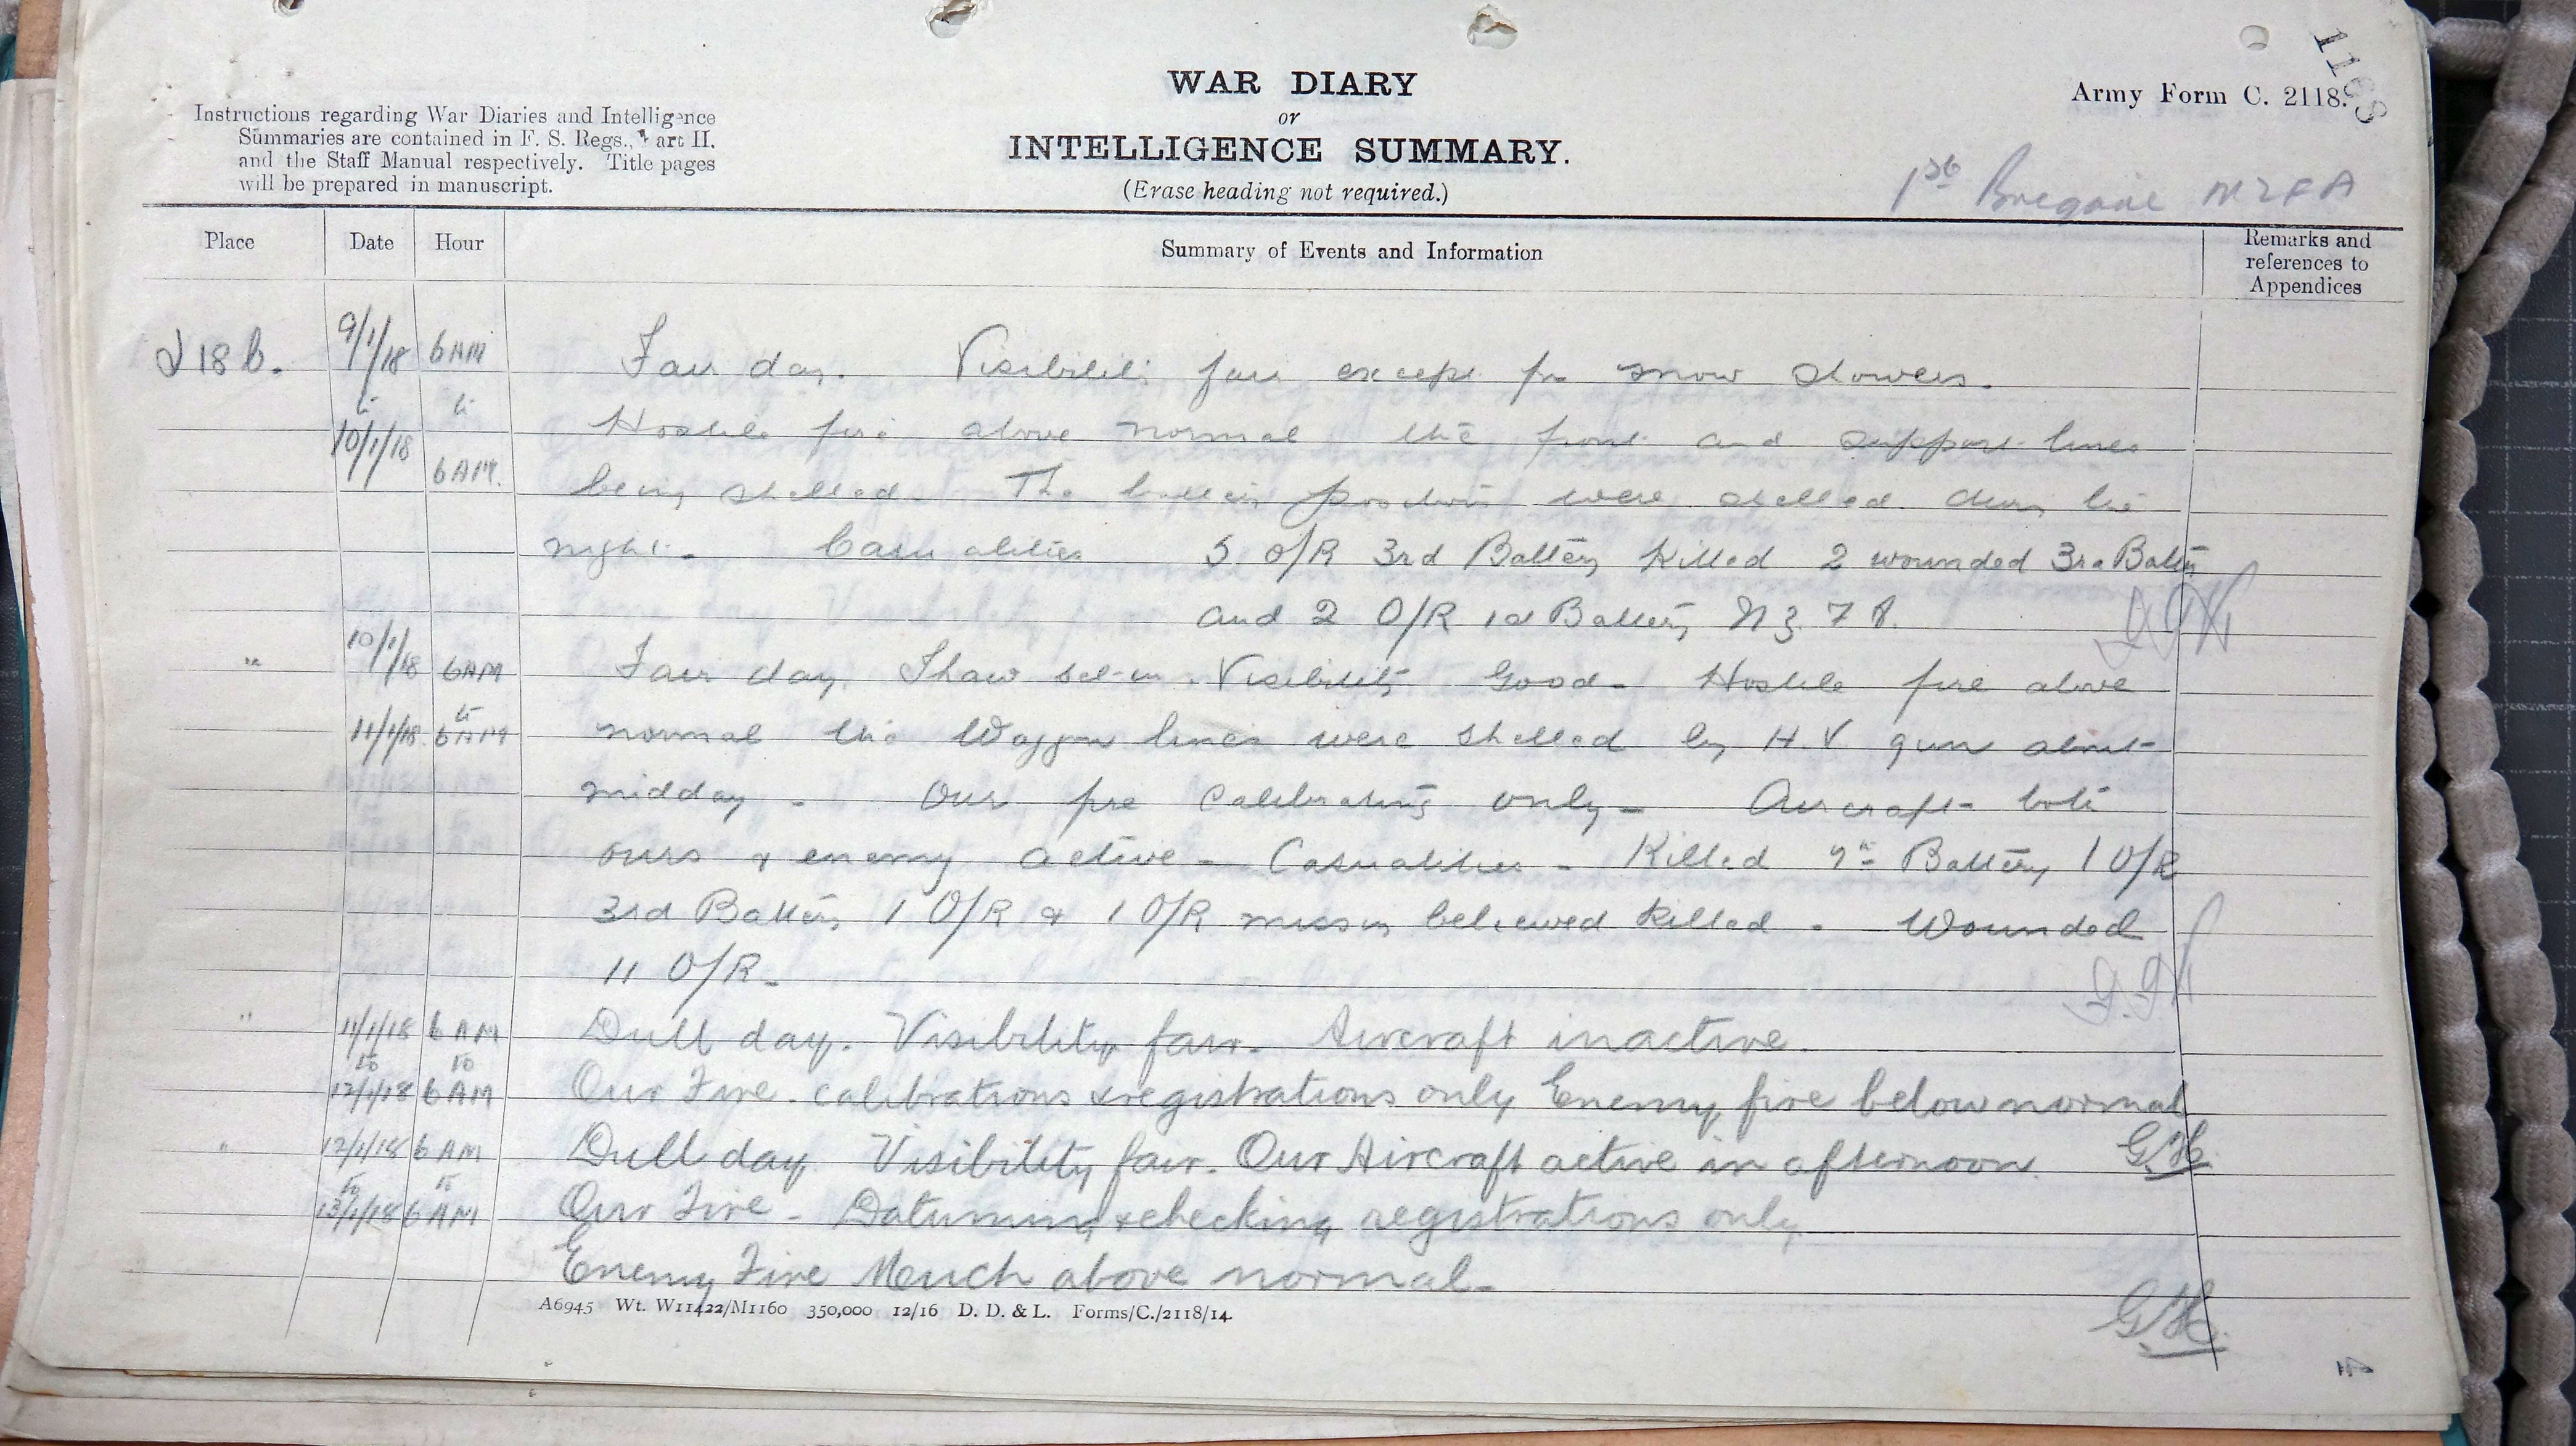 1168
WAR DIARY
or
INTELLIGENCE SUMMARY.
(Erase heading not required.)
Army Form C. 2118.
Instructions regarding War Diaries and Intelligence
Summaries are contained in F. S. Regs., Part II.
and the Staff Manual respectively. Title pages
will be prepared in manuscript.
1st Brigade NZFA
Place Date Hour Summary of Events and Information Remarks and references to Appendices
18 b. 9/1/18 6AM Fair day. Visibility fair except for snow showers.
to to
10/1/18 Hostile fire above normal the front and support lines
6AM. being shelled. The battery positions were shelled during the
night. Casualities 5 O/R 3rd Battery Killed 2 wounded 3rd Battery
and 2 O/R 1st Battery
" 10/1/18 6AM Fair day Thaw set-in. Visibility Good. Hostile fire above
to
11/1/18 6AM normal the Waggon lines were shelled by H.V gun about
midday. Our fire Calibrating only. Aircraft both
ours & enemy active. Casualities. Killed Battery 1 O/R
3rd Battery 1 O/R & 1 O/R missing believed killed. Wounded
11 O/R.
" 11/1/18 6 AM Dull day. Visibility fair. Aircraft inactive.
to to
12/1/18 6 AM Our Fire. calibrations & registrations only Enemy fire below normal
" 12/1/18 6 AM Dull day Visibility fair. Our Aircraft active in afternoon. G.H.
to to
13/1/18 6 AM Our Fire - Datuming & checking registrations only
Enemy Fire Much above normal.
A6945 Wt. W11422/M1160 350,000 12/16 D. D. & L. Forms/C./2118/14.
G.H.
4